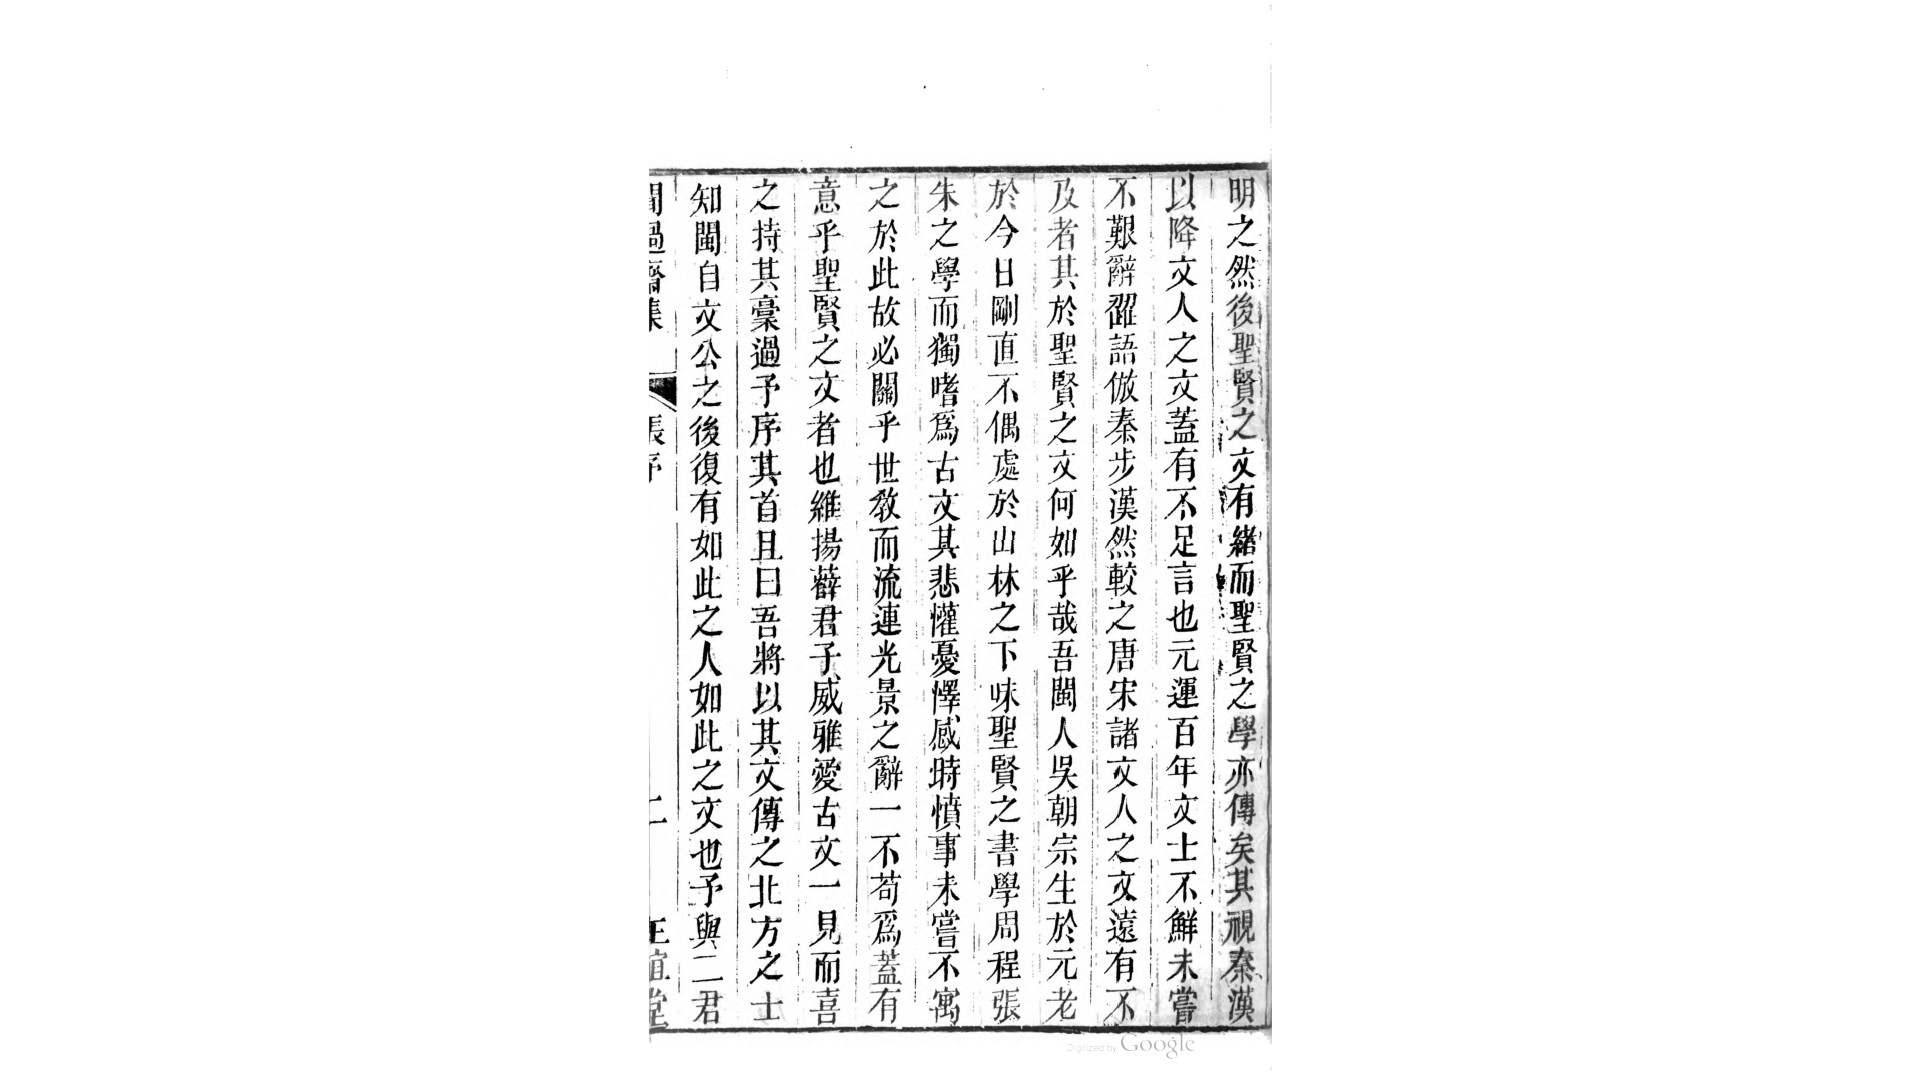 明之然後聖賢之文有緒而聖賢之學亦傳矣其視秦漢
以降文人之文蓋有不足言也元運百年文士不鮮未嘗
不艱辭澀語倣秦步漢然較之唐宋諸文人之文遠有不
及者其於聖賢之文何如乎哉吾閩人吳朝宗生於元老
於今日剛直不偶處於山林之下味聖賢之書學周程張
朱之學而獨嗜爲古文其悲懽憂懌感時憤事未嘗不寓
之於此故必關乎世敎而流連光景之辭一不苟爲蓋有
意乎聖賢之文者也維揚薛君子威雅愛古文一見而喜
之持其稾過予序其首且曰吾將以其文傳之北方之士
知閩自文公之後復有如此之人如此之文也予與二君
聞過齋集 張序 二 正誼堂
Digitized by Google